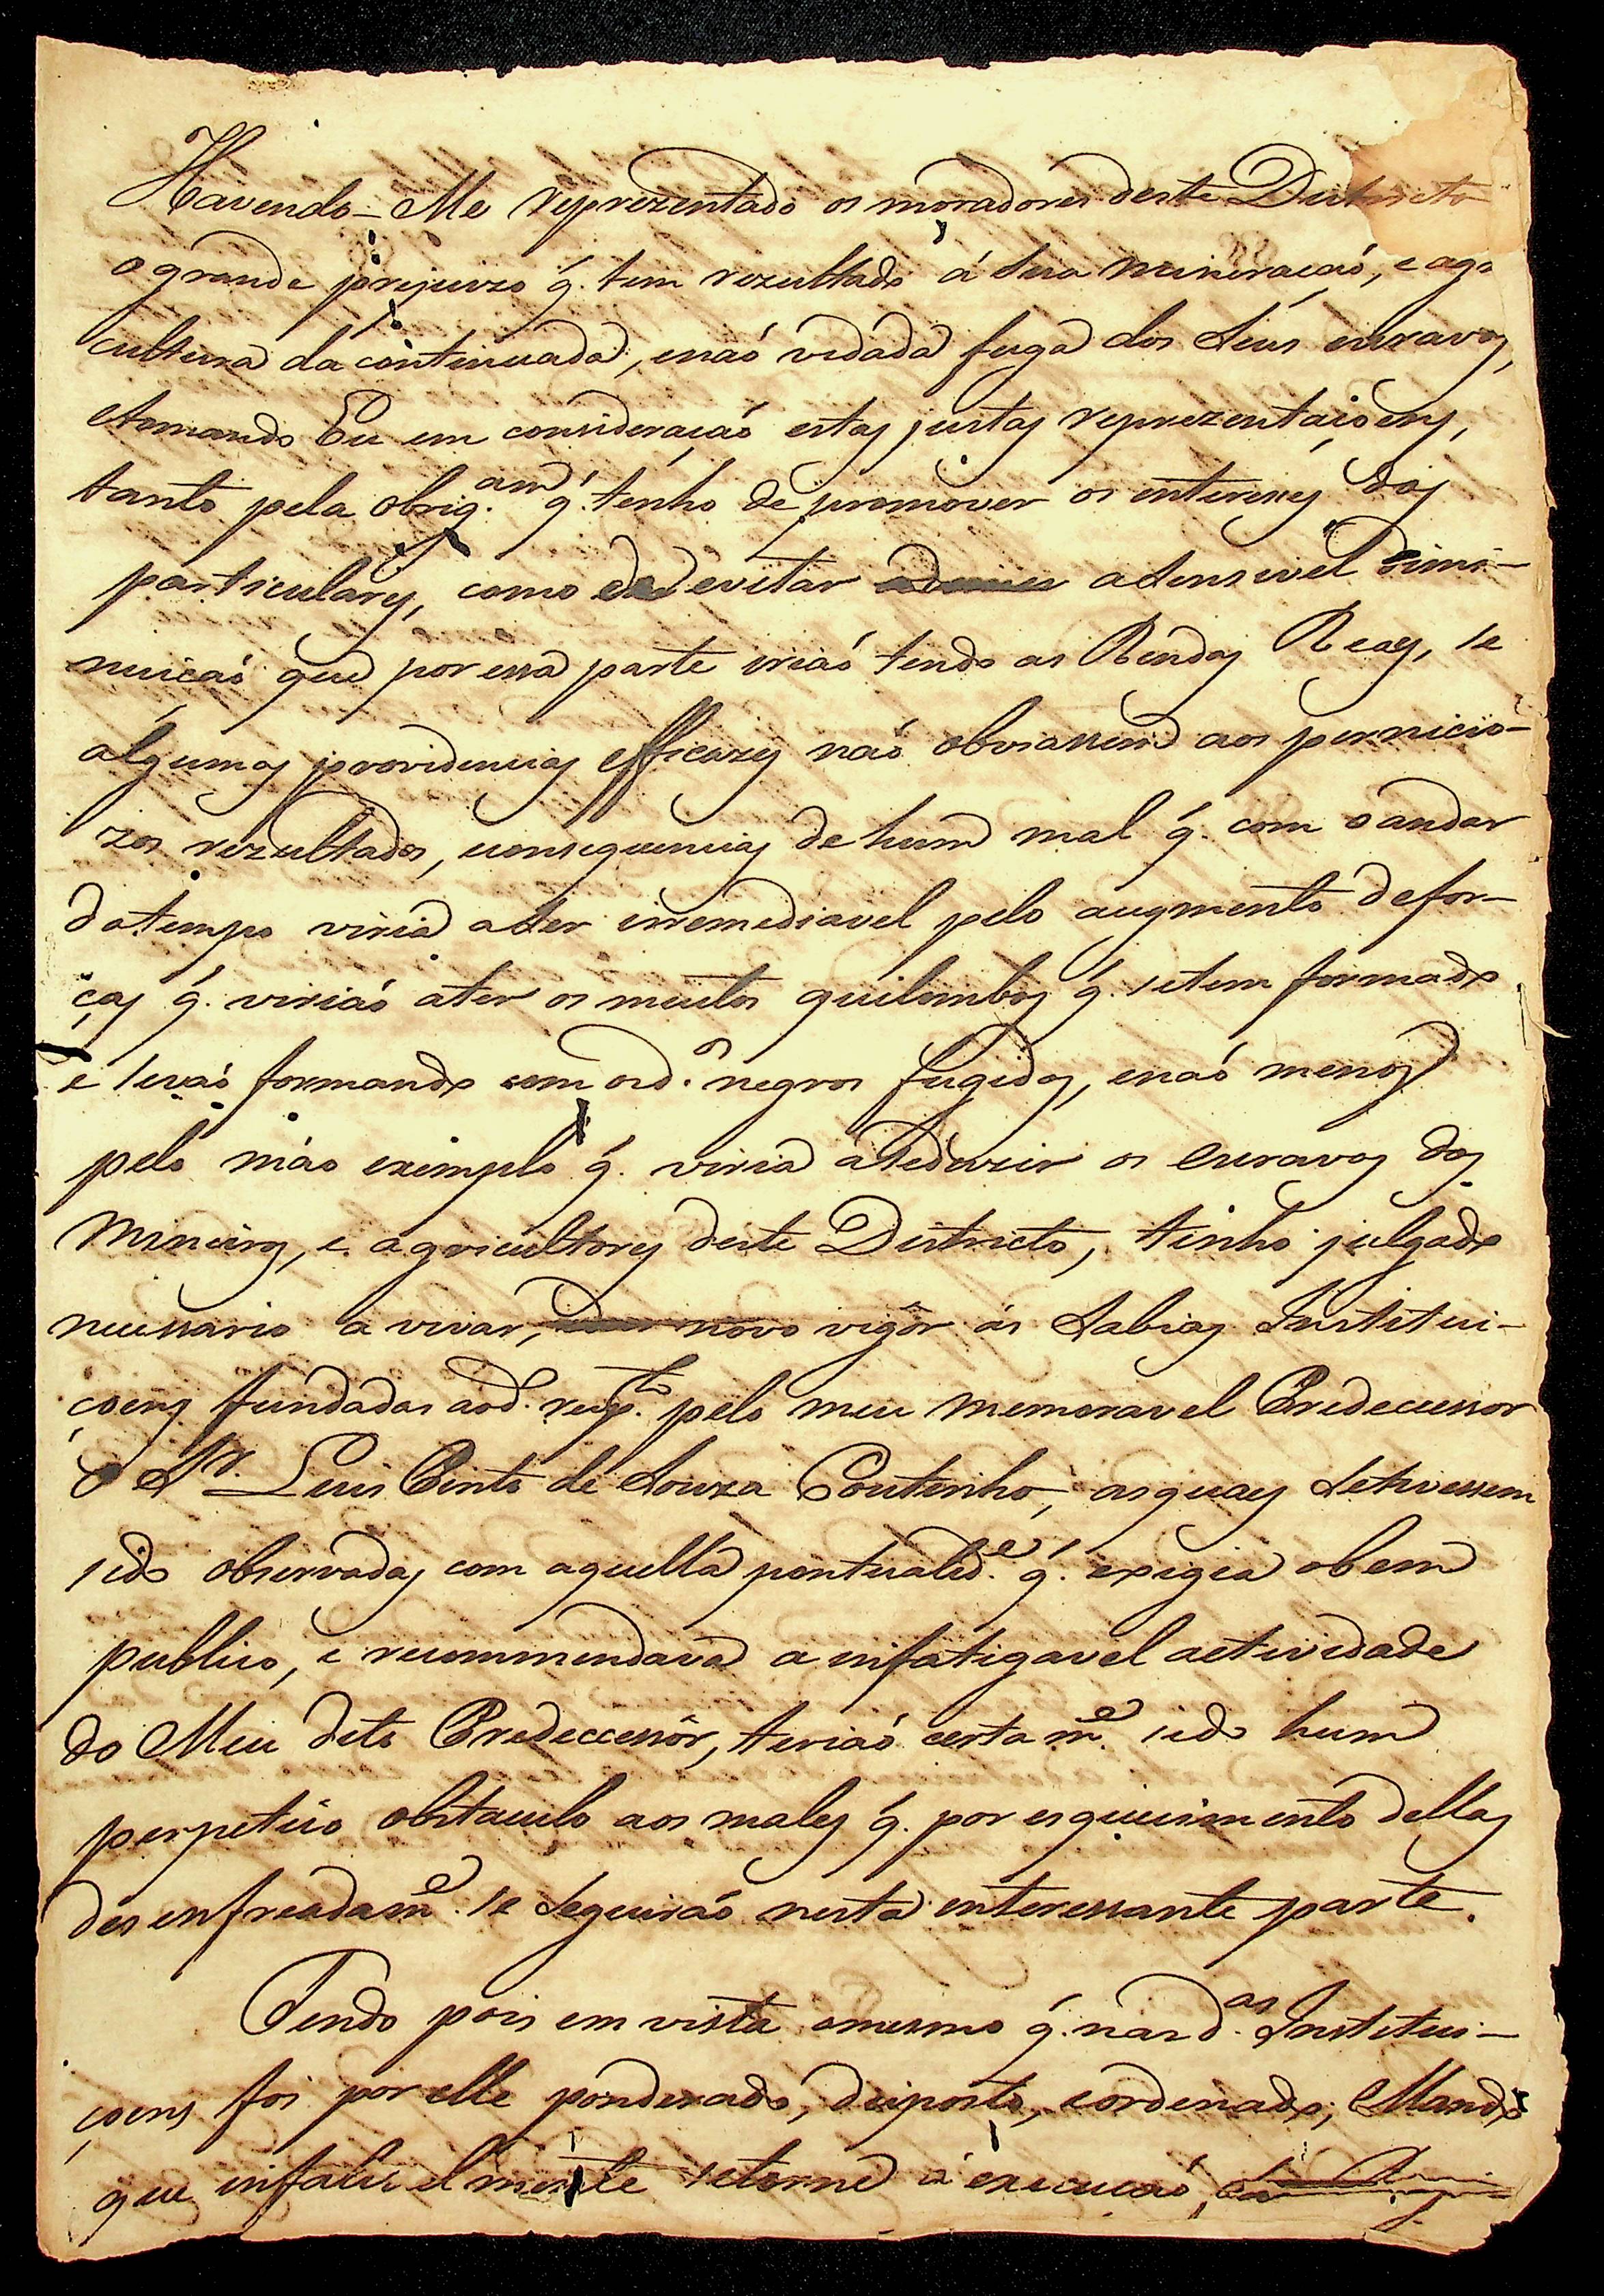 Havendo-Me reprezentado os moradores deste Districto
o grande prejuizo q̃. tem rezultado á sua mineraçaõ, e agri
cultura da continuada, e naõ vedada fuga dos seus escravos,
e tomando Eu em consideraçaõ estas justas reprezentaçoens,
tanto pela obrig.am q̃. tenho de promover os interesses dos
particulares, como de evitar a sensivel dimi-
nuiçaõ que por essa parte iriaõ tendo as Rendas Reaes, se
algumas providencias efficazes naõ obviassem aos pernicio-
zos rezultados, consequencias de hum mal q̃. com o andar
do tempo viria a ser irremediavel pelo augmento de for-
ças q̃. viriaõ a ter os muitos quilombos q̃. se tem formado
e se vaõ formando com os d.os negros fugidos, e naõ menos
pelo máo exemplo q̃. viria a seduzir os escravos dos
Mineiros, e agricultores deste Districto, tenho julgado
necessario avivar, novo vigôr ás Sabias Institui-
çoens fundadas a o d.o resp.to pelo meu memoravel Predecessor
o Sr. Luis Pinto de Souza Coutinho, as quaes se tivessem
sido observadas com aquella pontualid.e q̃. exigia o bem
publico, e recommendava a infatigavel actividade
do Meu dito Predeccessôr, teriaõ certam.e sido hum
perpetúo obstaculo aos males q̃. por esquecimento dellas
desenfreadam.e se seguiraõ nesta interessante parte.
Tendo pois em vista o mesmo q̃. nas d.as Institui-
çoens foi por elle ponderado, disposto, e ordenado; Mando
que infalivelmente se torne á execuçaõ,